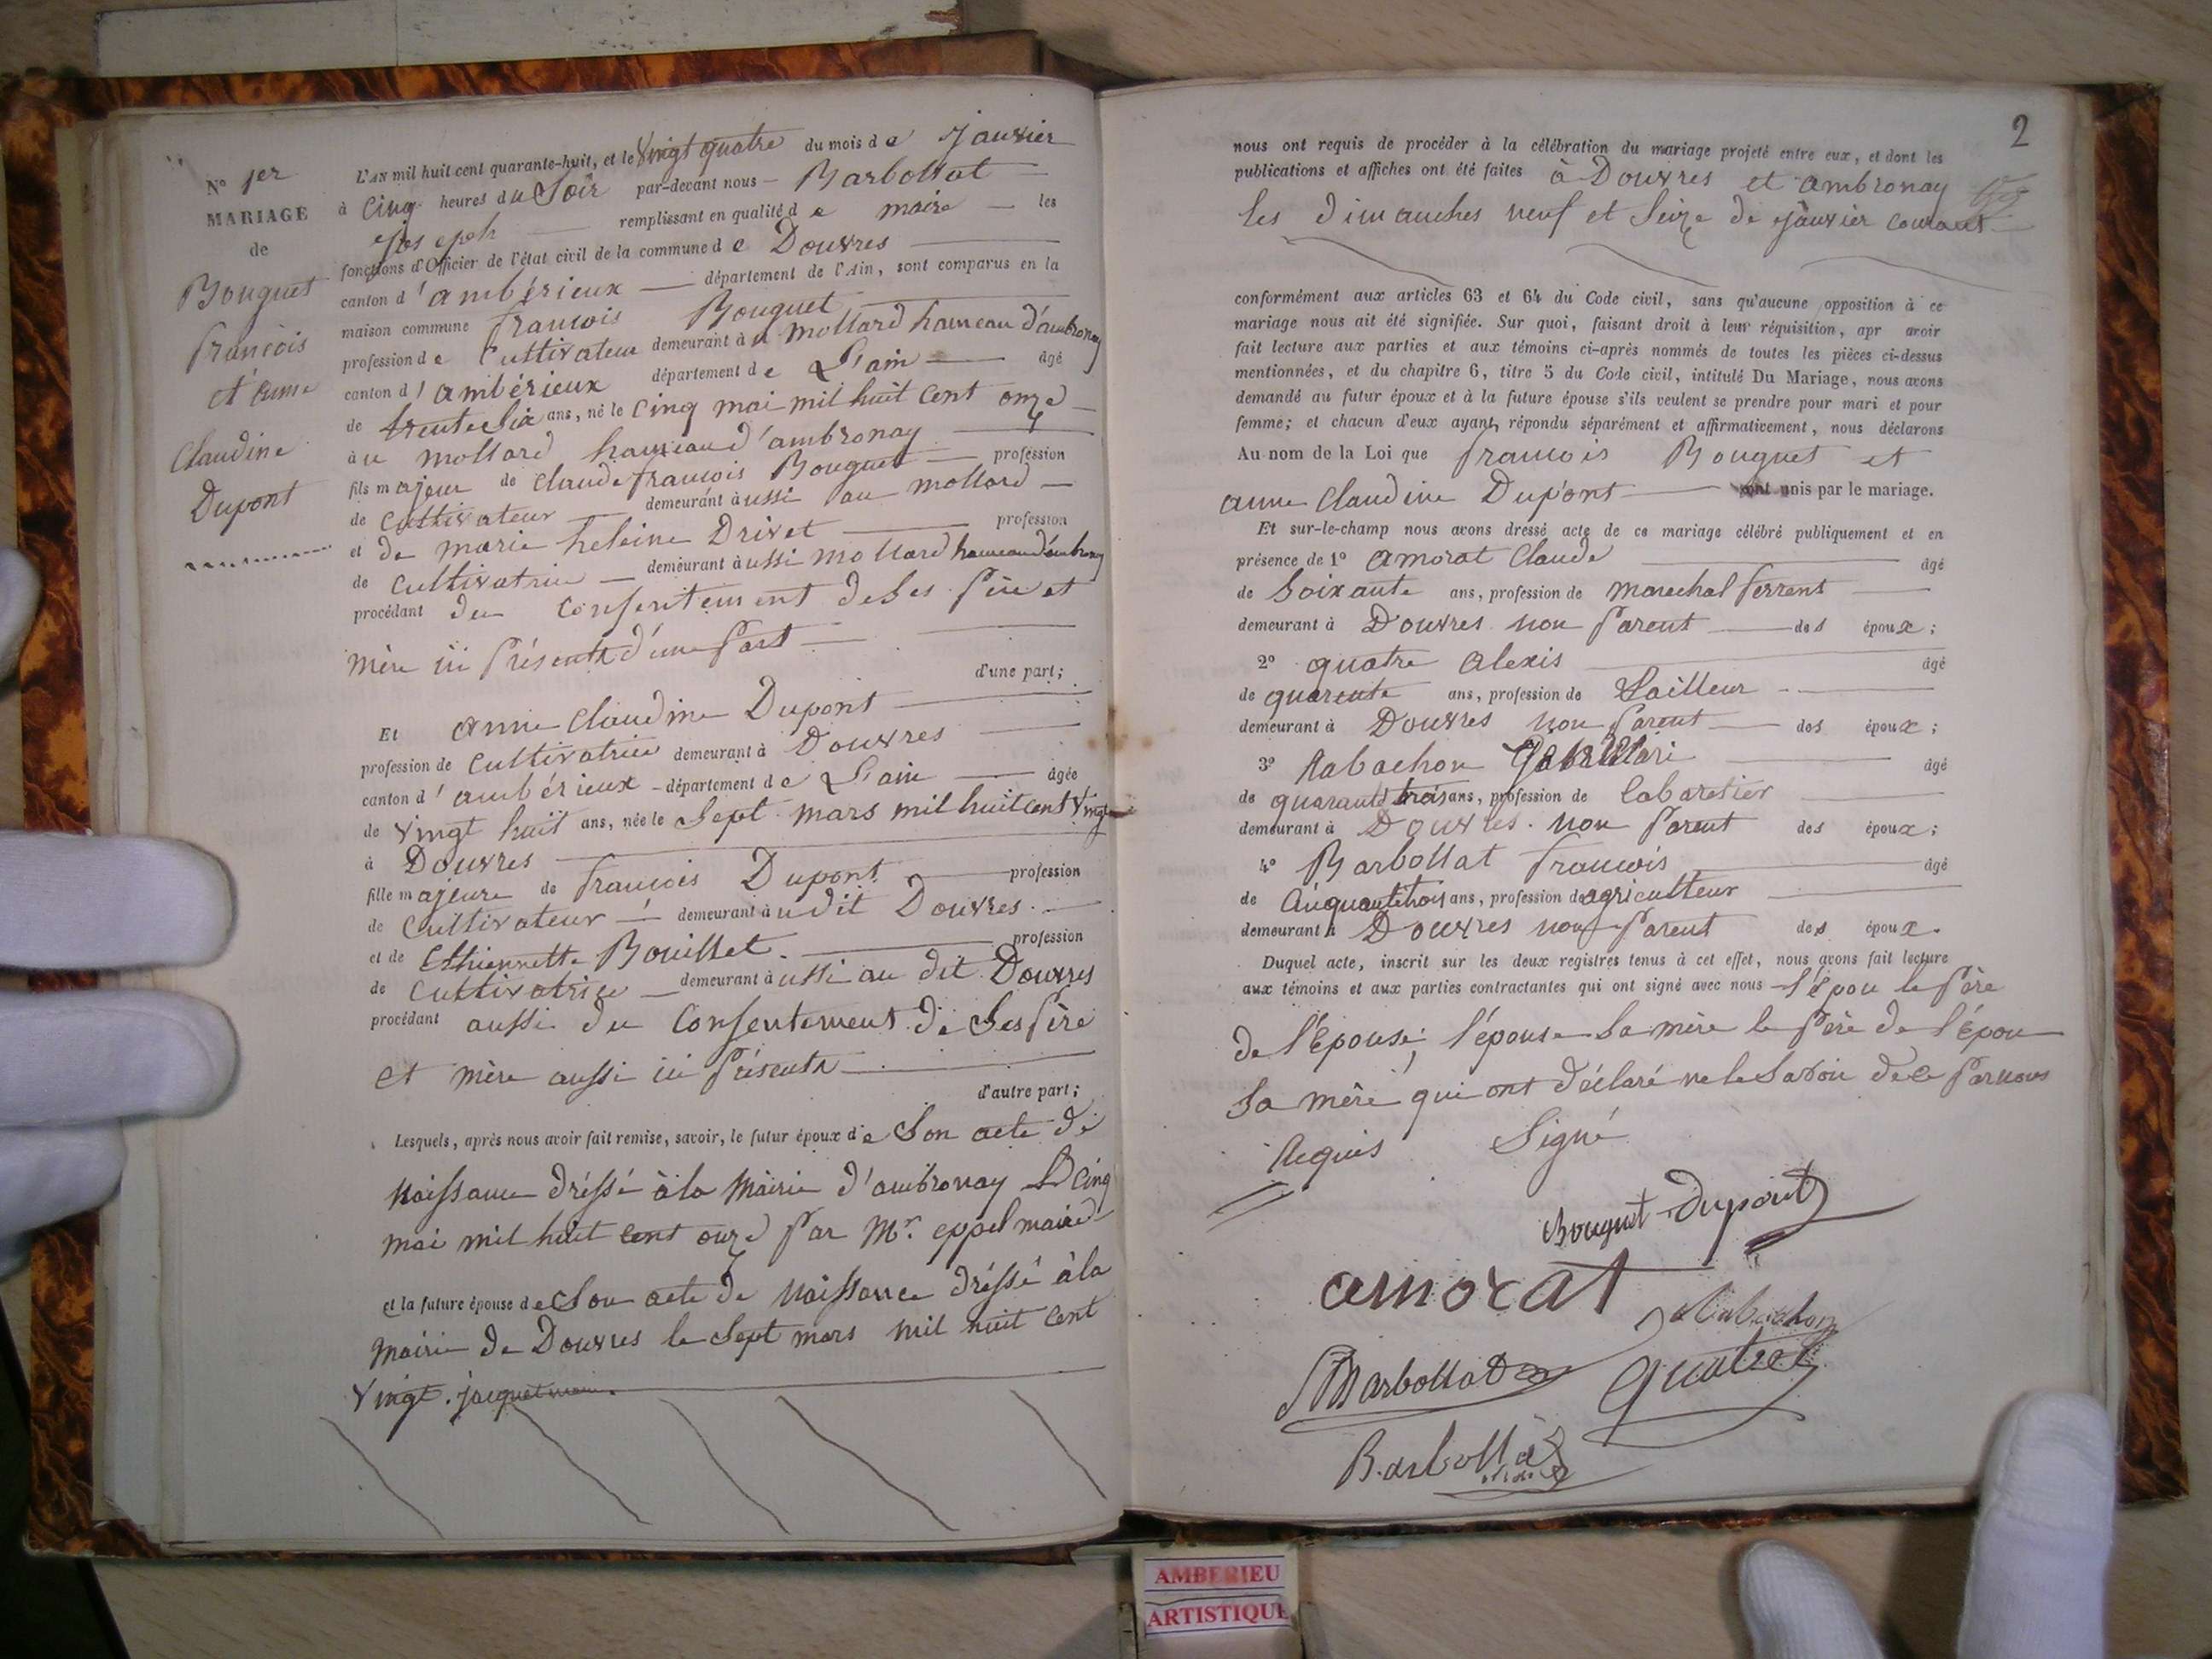 N° 1er
MARIAGE
de
Bouguet
francois
et anne
Claudine
Dupont
L'AN mil huit cent quarante-huit, et le Vingt quatre du mois de janvier
à Cinq heures du Soir par-devant nous Barbollat
joseph remplissant en qualité de maire les
fonctions d'Officier de l'état civil de la commune de Douvres
canton d'ambérieux département de l'Ain, sont comparus en la
maison commune francois Bouguet
profession de Cultivateur demeurant à u mollard hameau d'ambronay
canton d'ambérieux département de L'ain âgé
de trente Six ans, né le Cinq mai mil huit Cent onze
à u mollard hameau d'ambronay
fils majeur de claude francois Bouguet profession
de Cultivateur demeurant aussi au mollard
et de marie heleine Drivet profession
de Cultivatrice demeurant aussi mollard hameau d'ambronay
procédant du Consentement de Ses Père et
mère ici Présents d'une Part
d'une part;
Et anne Claudine Dupont
profession de Cultivatrice demeurant à Douvres
canton d'ambérieux département de L'ain âgée
de Vingt huit ans, née le Sept mars mil huit cent Vingt
à Douvres
fille majeure de francois Dupont profession
de Cultivateur demeurant audit Douvres
et de Ethiennette Bouillet profession
de Cultivatrice demeurant aussi au dit Douvres
procédant aussi du Consentement de Ses Père
et mère aussi ici Présents
d'autre part;
Lesquels, après nous avoir fait remise, savoir, le futur époux de Son acte de
Naissance dréssé à la Mairie d'ambronay Le Cinq
mai mil huit cent onze Par Mr. eppel maire
et la future épouse de Son acte de Naissance dréssé à la
mairie de Douvres le Sept mars mil huit Cent
Vingt. jacquet
2
nous ont requis de procéder à la célébration du mariage projeté entre eux, et dont les
publications et affiches ont été faites à Douvres et ambronay
les dimanches neuf et Seize de janvier courant
conformément aux articles 63 et 64 du Code civil, sans qu'aucune opposition à ce
mariage nous ait été signifiée. Sur quoi, faisant droit à leur réquisition, apr avoir
fait lecture aux parties et aux témoins ci-après nommés de toutes les pièces ci-dessus
mentionnées, et du chapitre 6, titre 5 du Code civil, intitulé Du Mariage, nous avons
demandé au futur époux et à la future épouse s'ils veulent se prendre pour mari et pour
femme; et chacun d'eux ayant répondu séparément et affirmativement, nous déclarons
Au nom de la Loi que francois Bouguet et
anne Claudine Dupont sont unis par le mariage.
Et sur-le-champ nous avons dressé acte de ce mariage célébré publiquement et en
présence de 1° amorat Claude âgé
de Soixante ans, profession de marechal ferrent
demeurant à Douvres non Parent des époux;
2° quatre alexis âgé
de quarente ans, profession de tailleur
demeurant à Douvres non Parent des époux;
3° Rabachon âgé
de quarante trois ans, profession de Cabaretier
demeurant à Douvres non Parent des époux;
4° Barbollat francois âgé
de Cinquantetrois ans, profession de agriculteur
demeurant à Douvres non Parent des époux.
Duquel acte, inscrit sur les deux registres tenus à cet effet, nous avons fait lecture
aux témoins et aux parties contractantes qui ont signé avec nous l'époux le Père
de l'Epouse, l'épouse Sa mère le Père de l'épou
Sa mère qui ont déclaré ne le Savoir de ce Par nous
Requis Signé
Bouguet Dupont
amorat
Rabachon
Barbollat quatre
Barbollat
AMBERIEU
ARTISTIQUE